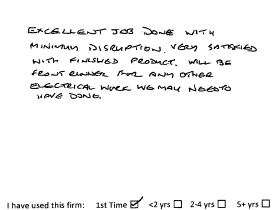 EXCELLENT JOB DONE WITH
MINIMUM DISRUPTION. VERY SATISFIED
WITH FINISHED PRODUCT. WILL BE
FRONT RUNNER FOR ANY OTHER
ELECTRICAL WORK WE MAY NEED TO
HAVE DONE.
I have used this firm: 1st Time ☑ <2 yrs ☐ 2-4 yrs ☐ 5+ yrs ☐